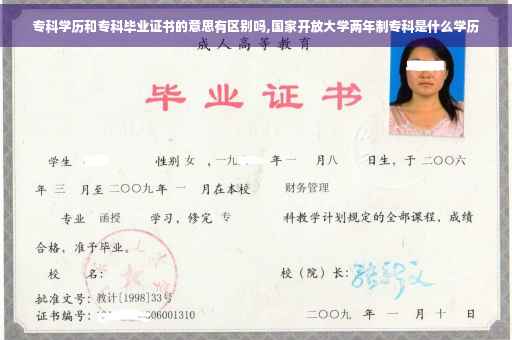 专科学历和专科毕业证书的意思有区别吗,国家开放大学两年制专科是什么学历
成人高等教育
毕业证书
学生 性别 女 ,一九 年一 月八 日生,于二〇〇六
年 三 月至二〇〇九年 一 月在本校 财务管理
专业 函授 学习,修完 专 科教学计划规定的全部课程,成绩
合格,准予毕业。
校 名: 校(院)长:
批准文号:教计[1998]33号
证书编号: 06001310 二〇〇九 年 一 月 十 日